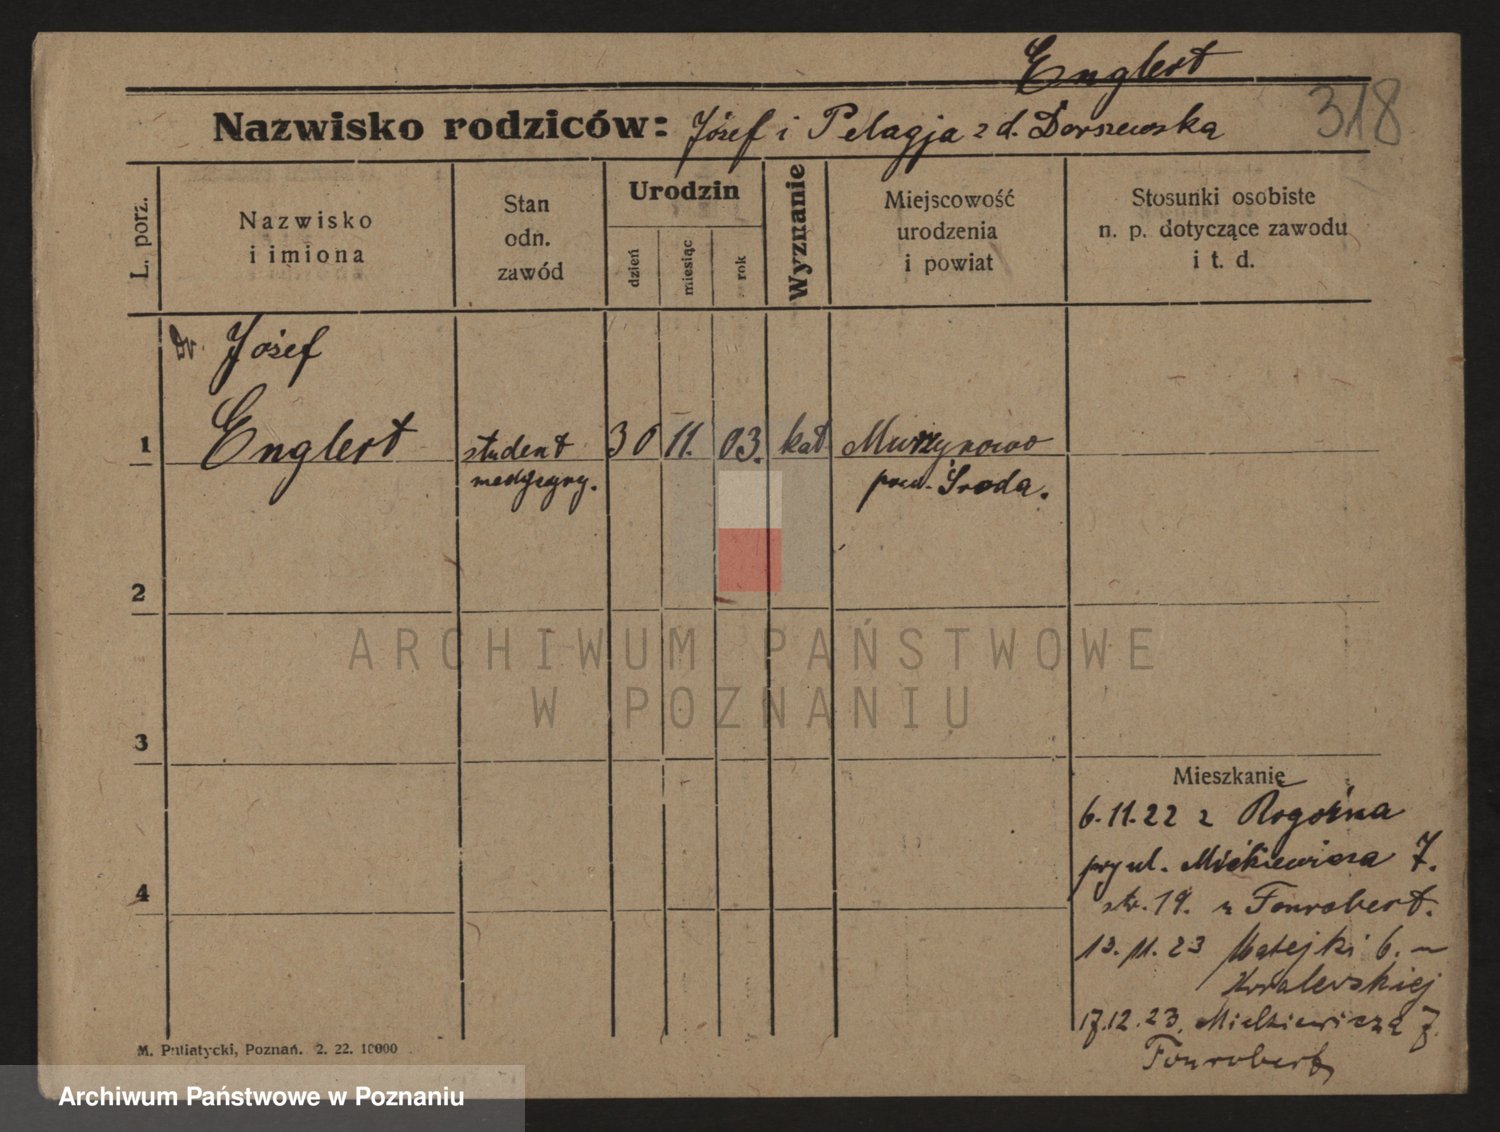 Englert
318
Nazwisko rodziców: Józef i Pelagja z d. Dorszewska
L. porz.
Nazwisko
i imiona
Stan
odn.
zawód
Urodzin
dzień
miesiąc
rok
Wyznanie
Miejscowość
urodzenia
i powiat
Stosunki osobiste
n. p. dotyczące zawodu
i t. d.
dr. Józef
1 Englert student 30 11. 03. kat Murzynowo
medycyny. pow. Środa.
2
3
4
Mieszkanie
6.11.22 z Rogoźna
przy ul. Mickiewicza 7.
str. 19. u Fonrobert.
13.11.23 Matejki 6. u
Koralewskiej
17.12.23. Mickiewicza 7.
Fonrobert
M. Putiatycki, Poznań. 2. 22. 10000
ARCHIWUM PAŃSTWOWE
W POZNANIU
Archiwum Państwowe w Poznaniu